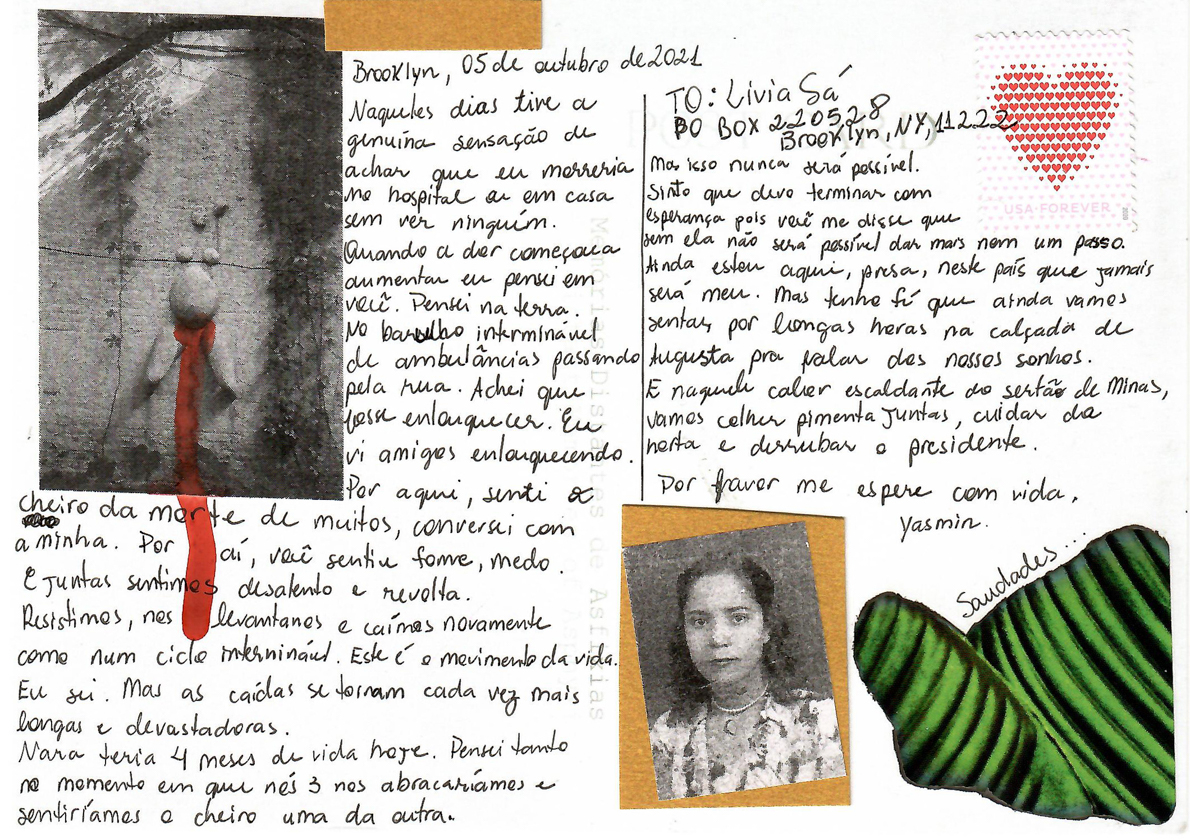 Brooklyn, 05 de outubro de 2021
Naqueles dias tive a
genuína sensação de
achar que eu morreria
no hospital ou em casa
sem ver ninguém.
Quando a dor começou a
aumentar eu pensei em
você. Pensei na terra.
No barulho interminável
de ambulâncias passando
pela rua. Achei que
fosse enlouquecer. Eu
vi amigos enlouquecendo.
Por aqui, senti o
cheiro da morte de muitos, conversei com
a minha. Por aí, você sentiu fome, medo.
E juntas sentimos desalento e revolta.
Resistimos, nos levantamos e caímos novamente
como num ciclo interminável. Este é o movimento da vida.
Eu sei. Mas as caídas se tornam cada vez mais
longas e devastadoras.
Nara teria 4 meses de vida hoje. Pensei tanto
no momento em que nós 3 nos abraçaríamos e
sentiríamos o cheiro uma da outra.
TO: Livia Sá
PO BOX 220528
Brooklyn, NY, 11222
Mas isso nunca será possível.
Sinto que devo terminar com
esperança pois você me disse que
sem ela não será possível dar mais nem um passo.
Ainda estou aqui, presa, neste país que jamais
será meu. Mas tenho fé que ainda vamos
sentar, por longas horas na calçada de
Augusta pra falar dos nossos sonhos.
E naquele calor escaldante do sertão de Minas,
vamos colher pimenta juntas, cuidar da
horta e derrubar o presidente.
Por favor me espere com vida,
Yasmin.
Saudades...
USA FOREVER
Memórias Distantes de Asfixias